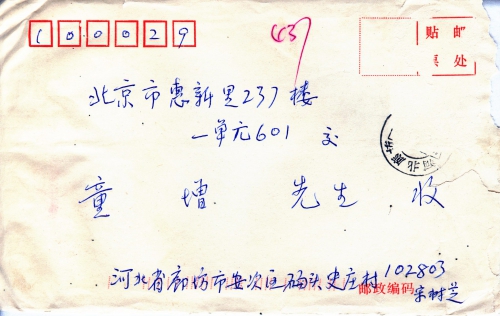 100029
437
贴 邮
票 处
北京市惠新里237楼
一单元601 交
童 增 先生 收
河北省廊坊市安次区码头史庄村
邮政编码 102803
宋树芝